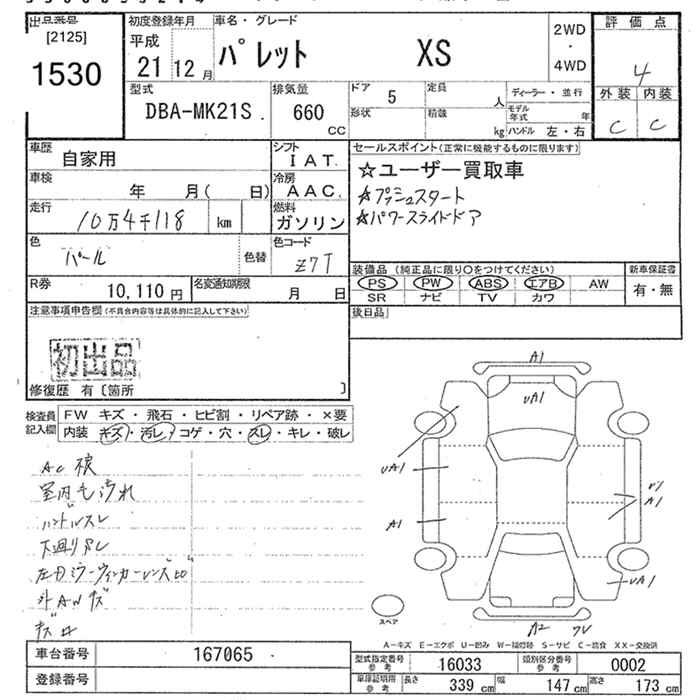 出品番号
[2125]
1530
初度登録年月
平成
21 12 月
車名・グレード
パレット XS
2WD
・
4WD
評価点
4
外装 内装
C C
型式
DBA-MK21S
排気量
660
CC
ドア
5
形状
定員
人
積載
kg
ディーラー・並行
モデル年式 年
ハンドル 左・右
車歴
自家用
シフト
IAT
車検
年 月( 日)
冷房
AAC
走行
10万4千118 km
燃料
ガソリン
色
パール
色替
色コード
Z7T
R券
10,110 円
名変通知期限
月 日
セールスポイント(正常に機能するものに限ります)
☆ユーザー買取車
☆プッシュスタート
☆パワースライドドア
装備品(純正品に限り○をつけてください)
PS PW ABS エアB AW
SR ナビ TV カワ
新車保証書
有・無
後日品
注意事項申告欄(不具合内容等は具体的に記入して下さい)
初出品
修復歴 有〔箇所 〕
検査員
記入欄
FW キズ・飛石・ヒビ割・リペア跡・×要
内装 キズ・汚レ・コゲ・穴・スレ・キレ・破レ
室内も汚れ
ハンドルスレ
下廻りサビ
外AWキズ
A1
UA1
UA1
A1
A1
UA1
A2
スペア
A-キズ E-エクボ U-凹み W-補修跡 S-サビ C-腐食 XX-交換済
車台番号
167065
登録番号
型式指定番号
参考
16033
類別区分番号
参考
0002
車庫証明用
参考
長さ 339 cm
幅 147 cm
高さ 173 cm